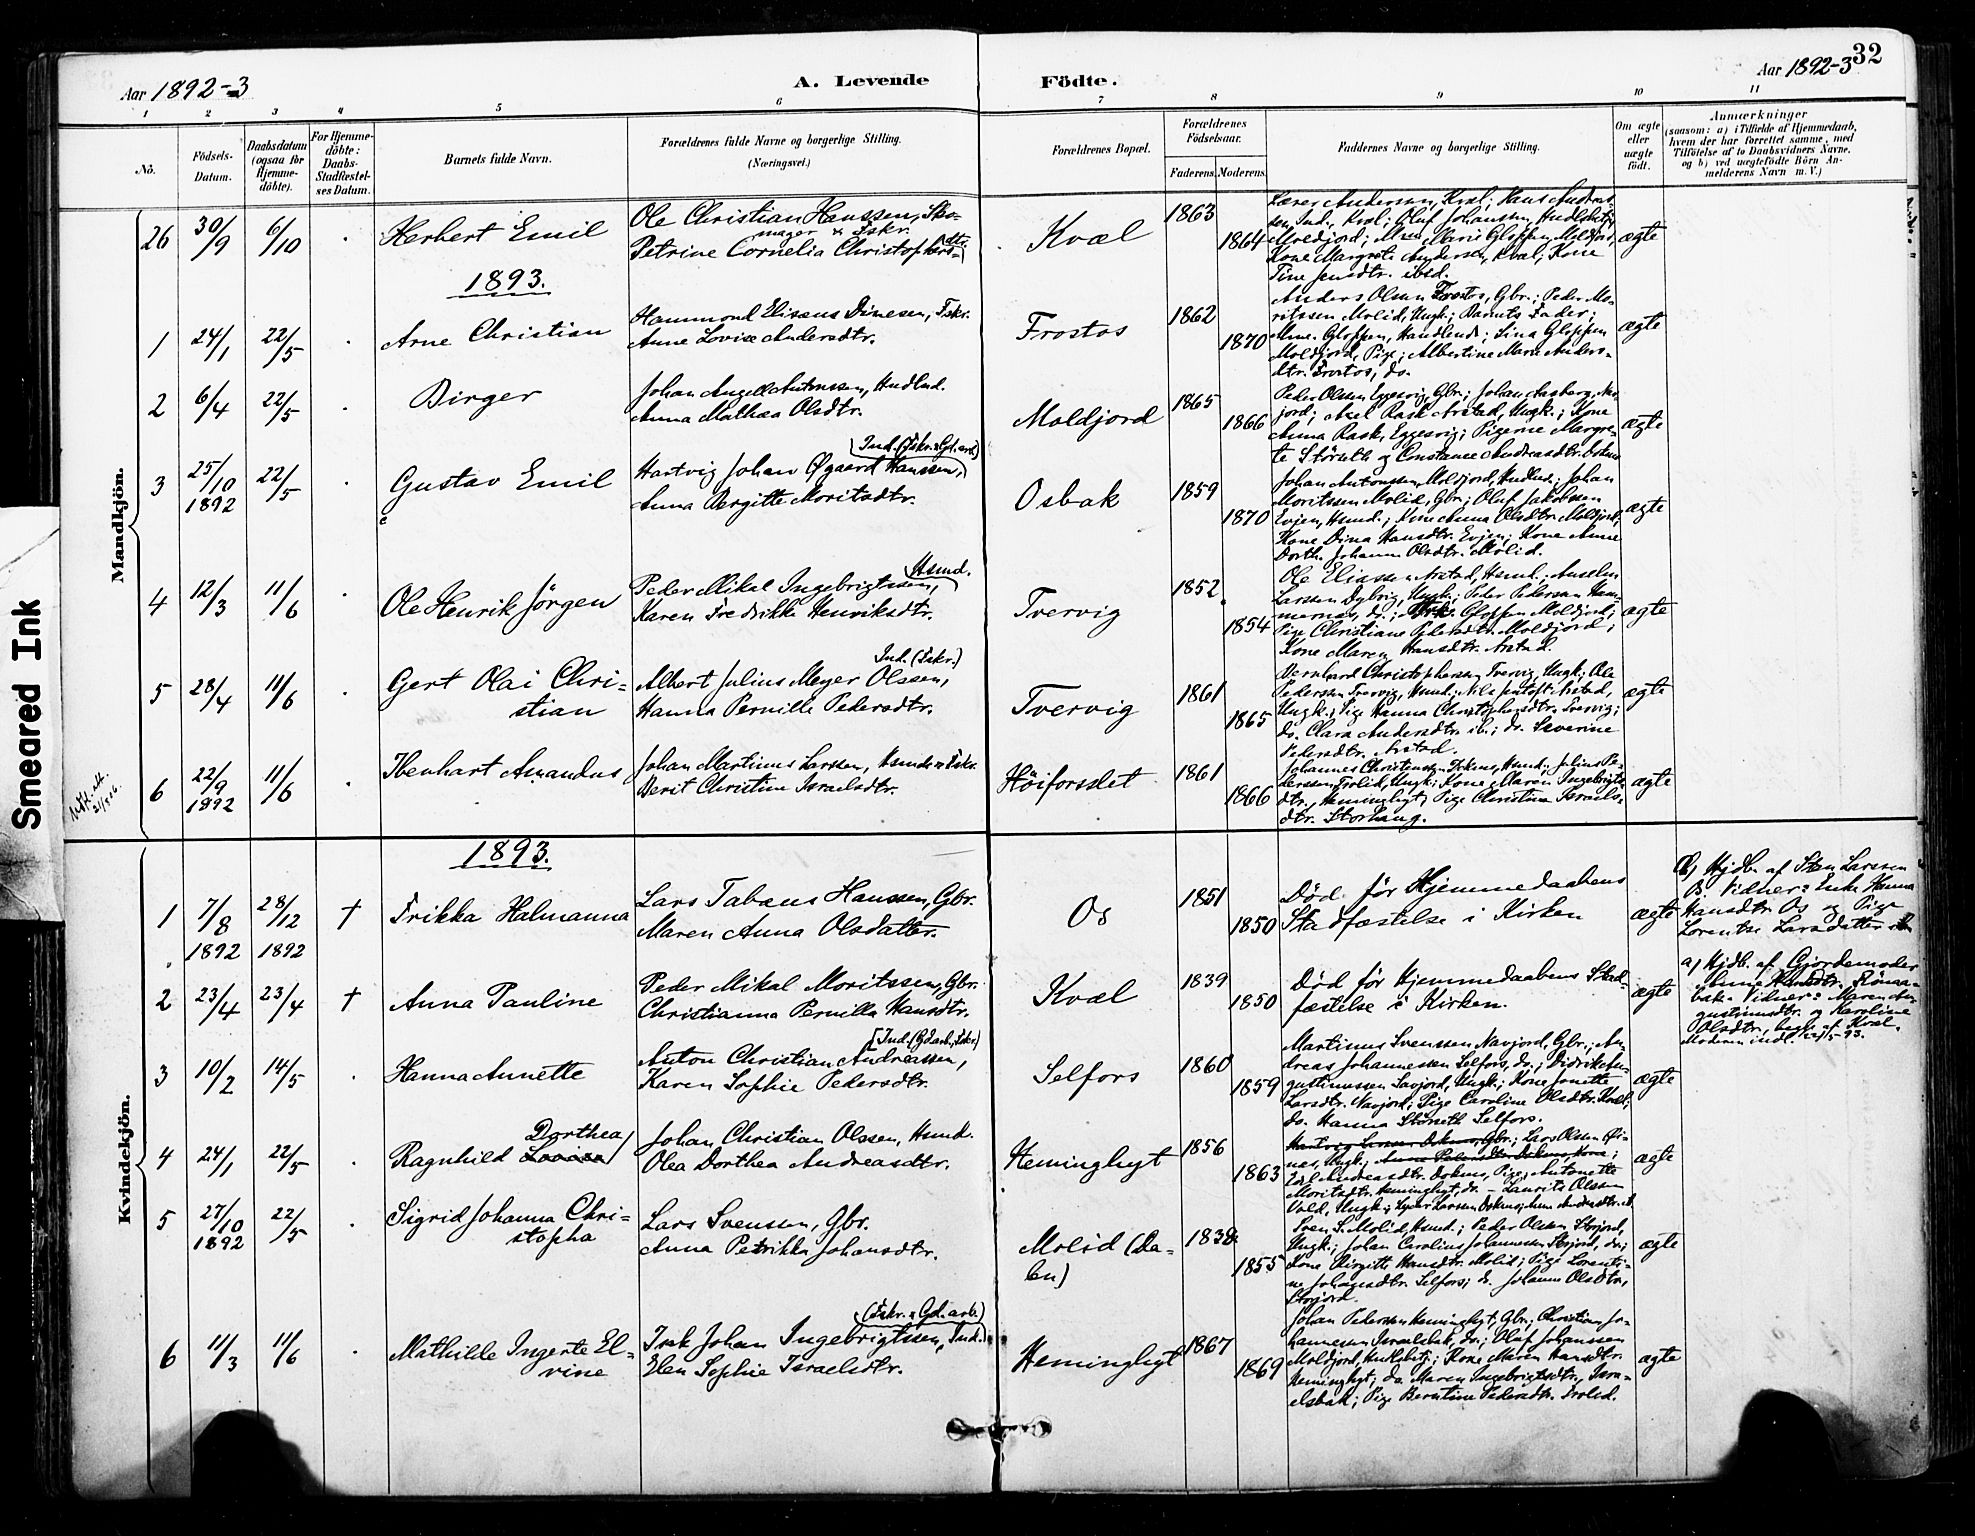 32
Aar 1892-3
A. Levende
Födte.
Aar 1892-3
1 2 3 4 5 6 7 8 9 10 11
No.
Födsels-
Datum.
Daabsdatum
(ogsaa for
Hjemme-
döbte).
For Hjemme-
döbte:
Daabs-
Stadfæstel-
ses Datum.
Barnets fulde Navn.
Forældrenes fulde Navne og borgerlige Stilling.
(Næringsvei.)
Forældrenes Bopæl.
Forældrenes
Födselsaar.
Faderens. Moderens.
Faddernes Navne og borgerlige Stilling.
Om ægte
eller
uægte
födt.
Anmærkninger
(saasom: a) i Tilfælde af Hjemmedaab,
hvem der har forrettet samme, med
Tilföielse af to Daabsvidners Navne,
og b) ved uægtefödte Börn An-
melderens Navn m. V.)
Smeared Ink
Mandkjön.
26 30/9 6/10 Herbert Emil
Ole Christian Hanssen, Sko-
mager & Fskr.
Petrine Cornelia Christophersdtr.
Kvæl 1863 1864
Moldjord; Marie Gloppen Moldjord,
Kone Margrete Andersen, Kvæl; Kone
Tine Jensdtr. ibid.
ægte
1893.
1 24/1 22/5 Arne Christian
Hammond Eliseus Dinesen, Fskr.
Anne Lovise Andersdtr.
Frostos 1862 1870
Anders Olsen Frostos, Gbr.; Peder Mo-
ritssen Molid, Ungk.; Barnets Fader;
Gloppen, Handlende; Lina Gloppen
Moldjord, Pige; Albertine Marie Anders-
dtr. Frostos, do.
ægte
2 6/4 22/5 Birger
Johan Angell Antonssen, Hndlnd.
Anna Mathea Olsdtr.
Moldjord 1865 1866
Peder Olssen Eggesvig, Gbr.; Johan
jord; Axel Rask Arstad, Ungk.; Kone
Anna Rask, Eggesvig; Pigerne Margre-
te Störseth og Constance Andreasdtr.
ægte
3 25/10 1892 22/5 Gustav Emil
Ind. (Fskr. & Gd.arb.)
Hartvig Johan Øgaard Hanssen,
Anna Bergitte Moritsdtr.
Osbak 1859 1870
Johan Antonssen, Moldjord, Hndlnd.; Johan
Moritssen Molid, Gbr.; Oluf Jakobssen
Evjen, Hsmd.; Kone Anna Olsdtr. Moldjord;
Kone Dina Hansdtr. Evjen; Kone Anne
Dorth. Johanna Olsdtr. Molid.
ægte
4 12/3 11/6 Ole Henrik Jörgen
Hsmd.
Peder Mikal Ingebrigtssen,
Karen Fredrikke Henriksdtr.
Tvervig 1852 1854
Ole Eliassen Arstad, Hsmd.; Anselm
Larssen Dybvig, Ungk.; Peder Pederssen Ham-
mernes, do.; Gloppen Moldjord;
Pige Christiane Pedersdtr. Moldjord;
Kone Maren Hansdtr. Arstad.
ægte
5 28/4 11/6 Gert Olai Chri-
stian
Ind. (Fskr.)
Albert Julius Meyer Olssen,
Hanna Pernille Pedersdtr.
Tvervig 1861 1865
Bernhard Christophersen Tvervig, Ungk.; Ole
Pederssen Tvervig, Hsmd.; Nils Arstad,
Ungk.; Pige Hanna Christophersdtr. Tvervig;
do. Clara Andersdtr. ib.; do. Severine
Pedersdtr. Arstad.
ægte
6 22/9 1892 11/6 Ibenhart Amandus
Johan Martinus Larssen, Hsmd. & Fskr.
Berit Christine Israelsdtr.
Höiforslet 1861 1866
Johannes Christenssen Dokmo, Hsmd.; Julius Pe-
derssen Trolid, Ungk.; Kone Maren Ingebrigts-
dtr., Heminghyt; Pige Christina Israels-
dtr. Storhaug.
ægte
Kvindekjön.
1893.
1 7/8 1892 28/12 1892 † Frikka Halmanna
Lars Tabeus Hanssen, Gbr.
Maren Anna Olsdatter.
Os 1851 1850
Död för Hjemmedaabens
Stadfæstelse i Kirken
ægte
a) Hjdb. af Sten Larssen
Vidner: Enke Hanna
Hansdtr. Os og Pige
Lorentse Larsdatter
2 23/4 23/4 † Anna Pauline
Peder Mikal Moritssen, Gbr.
Christianna Pernilla Hansdtr.
Kvæl 1839 1850
Död för Hjemmedaabens Stad-
fæstelse i Kirken.
ægte
a) Hjdb. af Gjordemoder
Anne Hansdtr.
bak. Vidner: Maren Au-
gustinusdtr. og Karoline
Olsdtr., begge af Kvæl.
Moderen indl. 22/5-93.
3 10/2 14/5 Hanna Annette
[Ind. (Gd.arb., Fskr.)
Anton Christian Andreassen,
Karen Sophie Pedersdtr.
Selfors 1860 1859
Martinus Svenssen Navjord, Gbr.; An-
dreas Johannessen Selfors, do.; Didrik Au-
gustinussen Savjord, Ungk.; Kone Jonette
Larsdtr. Navjord; Pige Caroline Olsdtr. Kvæl;
do. Hanna Störseth Selfors.
ægte
4 24/1 22/5 Ragnhild Dorthea
Johan Christian Olssen, Hsmd.
Olea Dorthea Andreasdtr.
Heminghyt 1856 1863
Hartvig Larssen Dokmo, Gbr.; Lars Olssen
Ungk.; Anne Pedersdtr. Dokmo, Kone;
Andreasdtr. Dokmo, Pige; Antonette
Moritsdtr. Heminghyt, do. – Laurits Olssen
Vold, Ungk.; Peder Larssen Dokmo;
ægte
5 27/10 1892 22/5 Sigrid Johanna Chri-
stopha
Lars Svenssen, Gbr.
Anna Petrikke Johansdtr.
Molid (Da-
len) 1838 1855
Sven S. Molid, Hsmd.; Peder Olssen Storjord,
Ungk.; Johan Carolius Johannessen Storjord, do.;
Kone Birgitte Hansdtr. Molid; Pige Lorenti-
ne Johansdtr. Selfors; do. Johanna Olsdtr.,
Storjord.
ægte
6 11/3 11/6 Mathilde Ingerte El-
vine
(Fskr. & Gd.arb.)
Isak Johan Ingebrigtssen, Ind.
Elen Sophie Israelsdtr.
Heminghyt 1867 1869
Johan Pederssen Heminghyt, Gbr.; Christian Jo-
hannessen Israelsbak, do.; Oluf Johanssen
Moldjord, Hndlsbetj.; Kone Maren Hansdtr.
Heminghyt; do. Maren Ingebrigtsdtr., Isra-
elsbak; Pige Berntine Pedersdtr. Trolid.
ægte